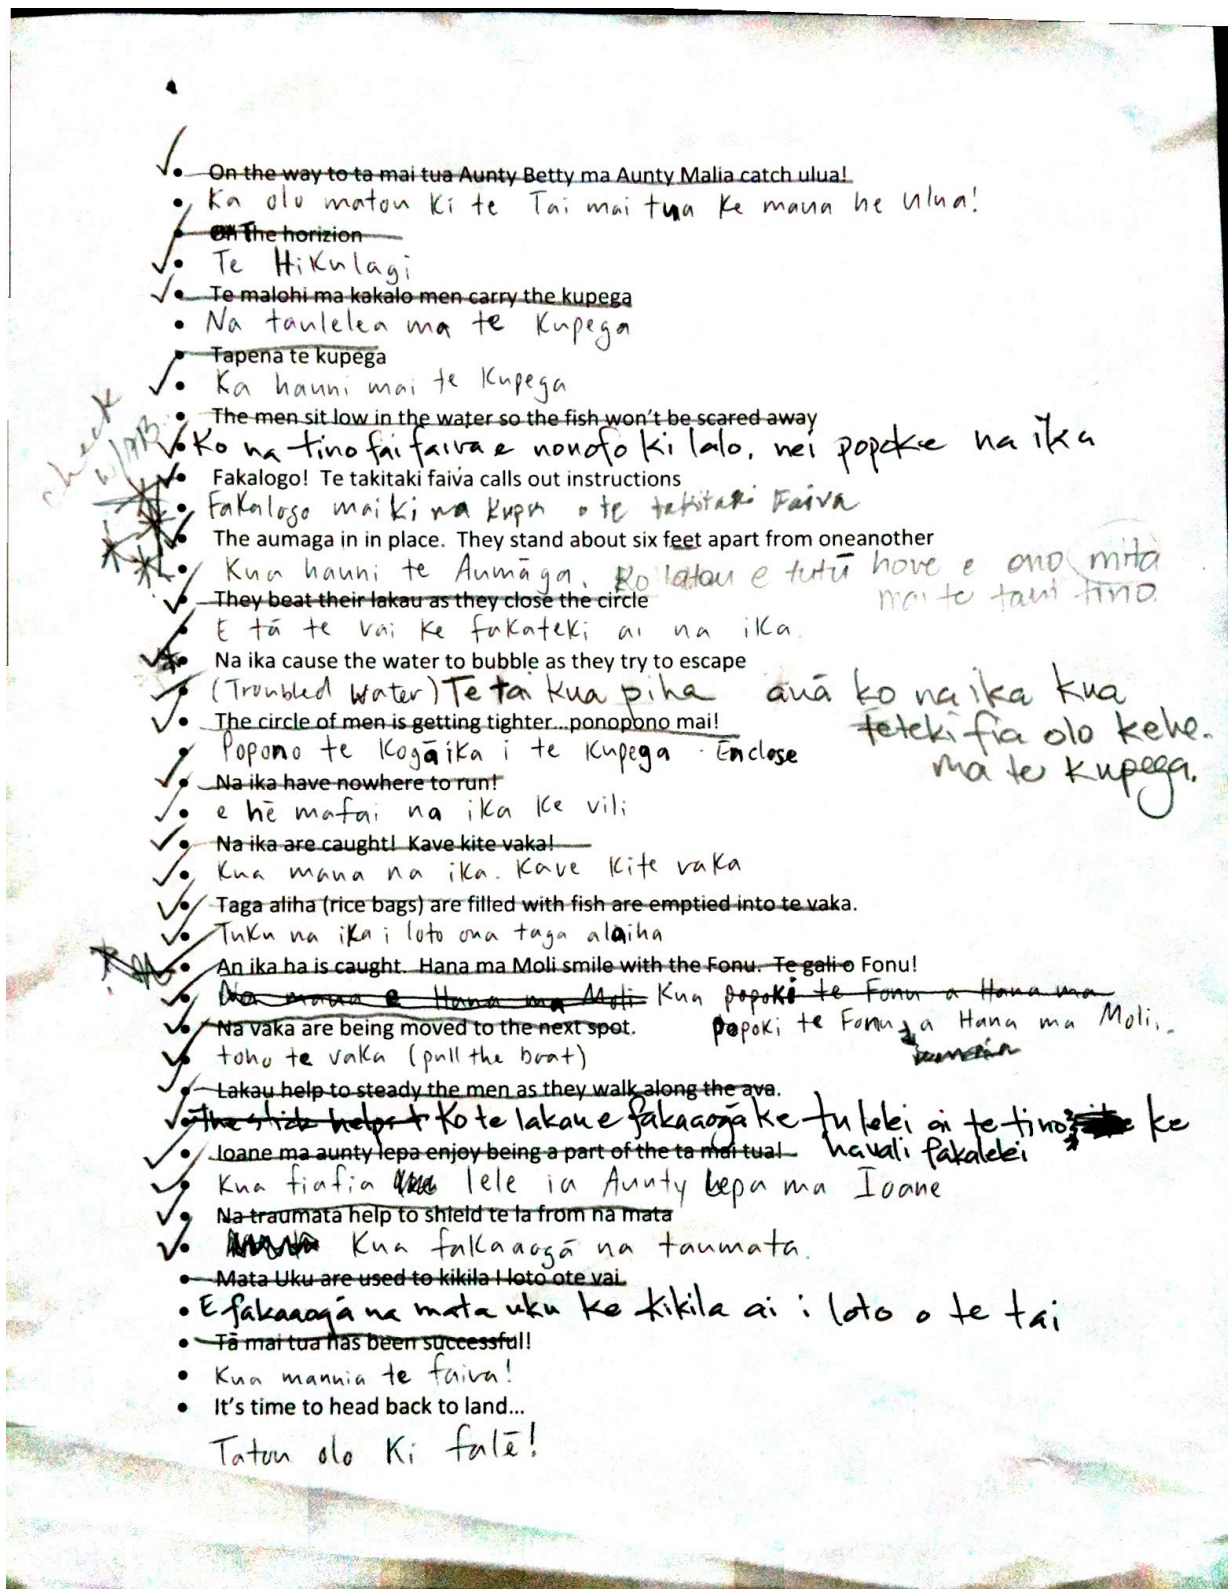 On the way to ta mai tua Aunty Betty ma Aunty Malia catch ulua!
Ka olo matou ki te Tai mai tua ke maua he ulua!
On The horizion
Te Hikulagi
Te malohi ma kakalo men carry the kupega
Na taulelea ma te kupega
Tapena te kupega
Ka hauni mai te kupega
check w/
The men sit low in the water so the fish won't be scared away
Ko na tino fai faiva e nonofo ki lalo, nei popoke na ika
Fakalogo! Te takitaki faiva calls out instructions
Fakalogo mai ki na kupu o te takitaki Faiva
The aumaga in in place. They stand about six feet apart from oneanother
Kua hauni te Aumāga. Ko latou e tutū hove e ono mita
mai te tahi tino.
They beat their lakau as they close the circle
E tā te vai ke fakateki ai na ika.
Na ika cause the water to bubble as they try to escape
(Troubled Water) Te tai kua piha auā ko na ika kua
teteki fia olo kehe.
ma te kupega.
The circle of men is getting tighter...ponopono mai!
Popono te Kogāika i te kupega . Enclose
Na ika have nowhere to run!
e hē mafai na ika ke vili
Na ika are caught! Kave kite vaka!
Kua maua na ika. Kave kite vaka
Taga aliha (rice bags) are filled with fish are emptied into te vaka.
Tuku na ika i loto ona taga alaiha
An ika ha is caught. Hana ma Moli smile with the Fonu. Te gali o Fonu!
Na maua e Hana ma Moli Kua popoki te Fonu a Hana ma
Na vaka are being moved to the next spot. popoki te Fonu a Hana ma Moli.
toho te vaka (pull the boat)
Lakau help to steady the men as they walk along the ava.
The stick helps t Ko te lakau e fakaaogā ke tu lelei ai te tino ke
havali fakalelei
Ioane ma aunty lepa enjoy being a part of the ta mai tua!
Kua fiafia lele ia Aunty Lepa ma Ioane
Na traumata help to shield te la from na mata
Kua fakaaogā na taumata.
Mata Uku are used to kikila I loto ote vai.
E fakaaogā na mata uku ke kikila ai i loto o te tai
Tā mai tua has been successful!
Kua manuia te faiva!
It's time to head back to land...
Tatou olo ki falē!